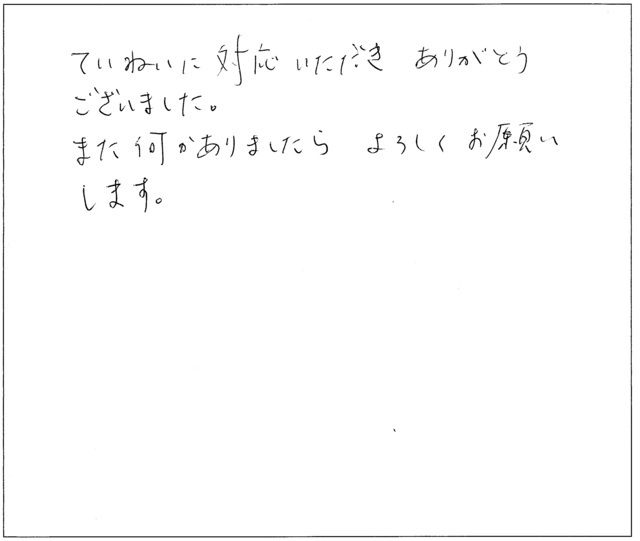 ていねいに対応いただき ありがとう
ございました。
また何かありましたら よろしくお願い
します。